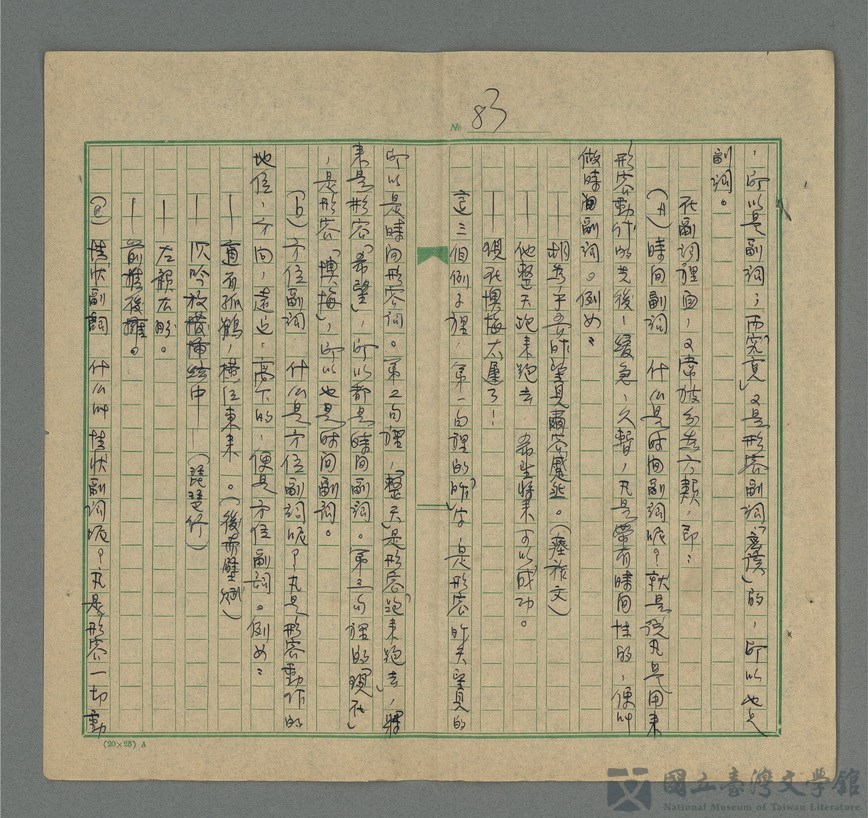 No 83
，所以是副詞；而「究竟」又是形容副詞「意誤」的，所以也是
副詞。
在副詞裡面，又常被分為六類，即：
(A) 時間副詞　什么是時間副詞呢？就是說凡是用來
形容動作的先後，緩急，久暫，凡是帶有時間性的，便叫
做時間副詞。例如：
——胡為乎吾昨望見爾容蹙然。（瘞旅文）
——他整天跑來跑去　希望將來可以成功。
——現在懊悔太遲了！
這三個例子裡，第一句裡的「昨」字，是形容昨天望見的
所以是時間形容詞。第2句裡，「整天」是形容「跑來跑去」，「將
來」是形容「希望」，所以都是時間副詞。第三句裡的「現在」
，是形容「懊悔」，所以也是時間副詞。
(b) 方位副詞　什么是方位副詞呢？凡是形容動作的
地位，方向，遠近，高下的，便是方位副詞。例如：
——適有孤鶴，橫江東來。（後赤壁賦）
——沉吟放撥插絃中——（琵琶行）
——左顧右盼。
——前擁後擁。
(c) 情狀副詞　什么叫情狀副詞呢？凡是形容一切動
(20×25) A
國立臺灣文學館
National Museum of Taiwan Literature